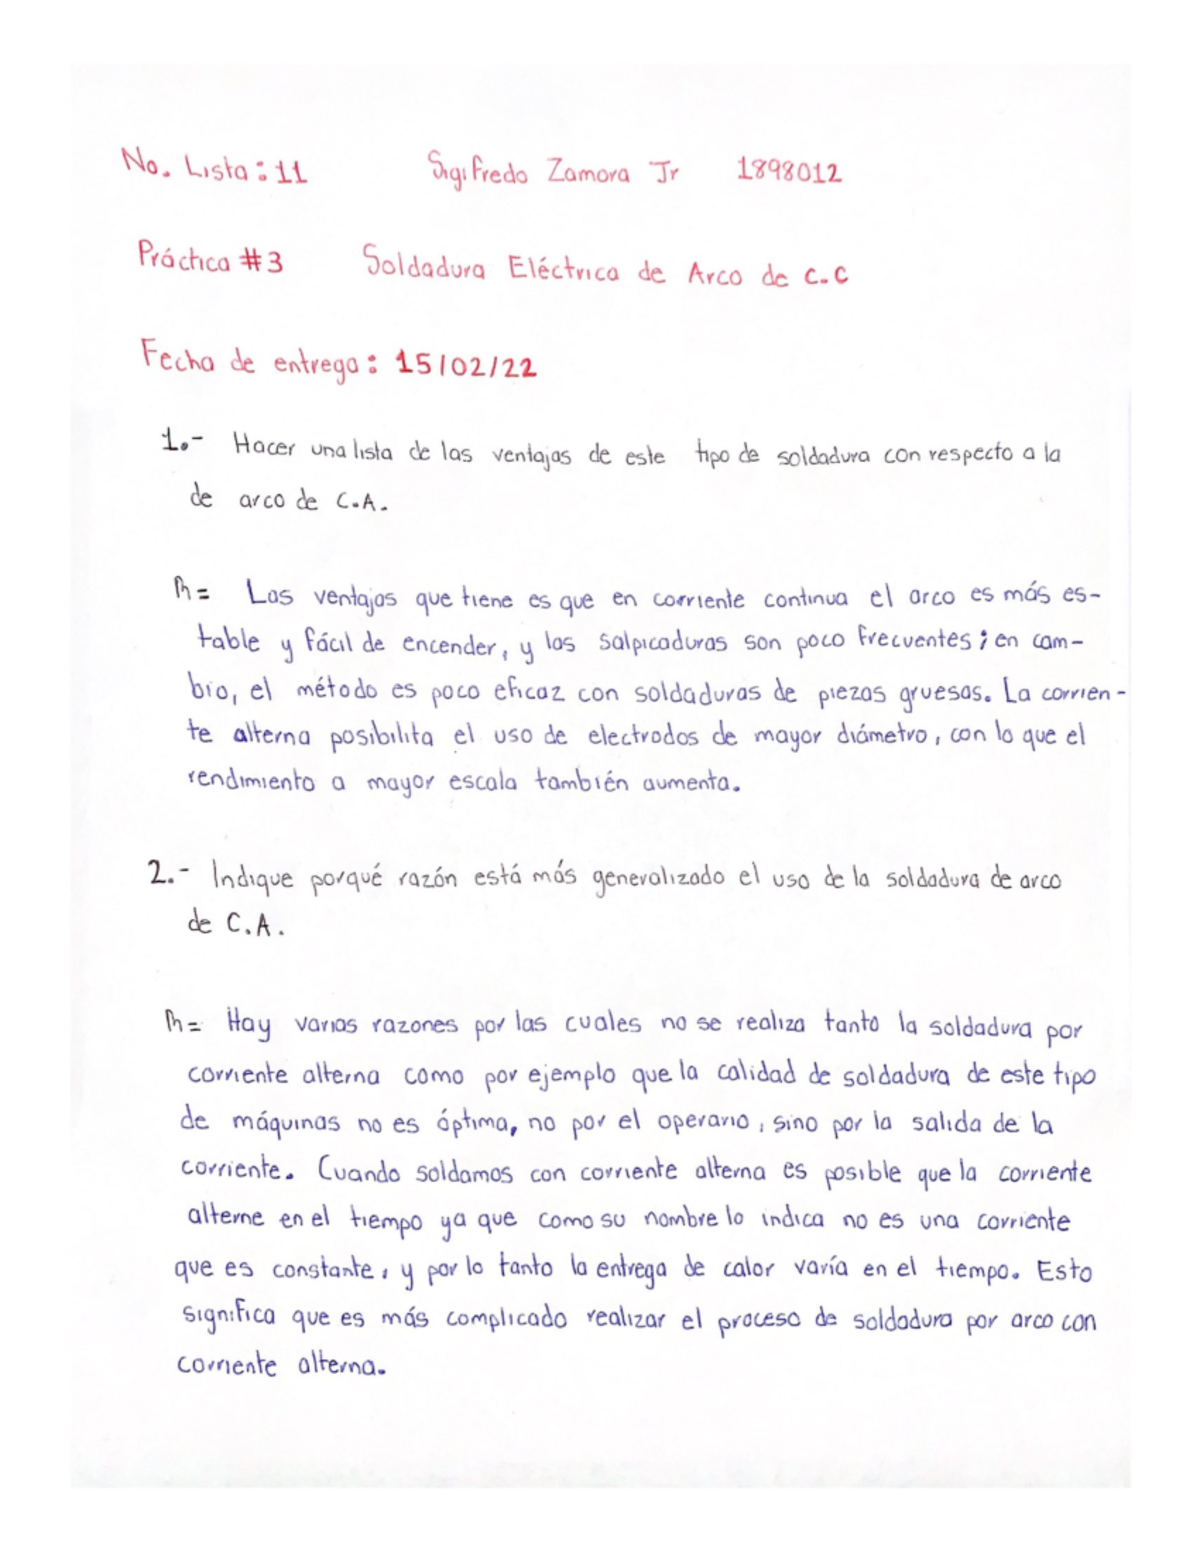 No. Lista: 11 Sigifredo Zamora Jr 1898012
Práctica #3 Soldadura Eléctrica de Arco de C.C
Fecha de entrega: 15/02/22
1.- Hacer una lista de las ventajas de este tipo de soldadura con respecto a la
de arco de C.A.
R= Las ventajas que tiene es que en corriente continua el arco es más es-
table y fácil de encender, y las salpicaduras son poco frecuentes; en cam-
bio, el método es poco eficaz con soldaduras de piezas gruesas. La corrien-
te alterna posibilita el uso de electrodos de mayor diámetro, con lo que el
rendimiento a mayor escala también aumenta.
2.- Indique porqué razón está más generalizado el uso de la soldadura de arco
de C.A.
R= Hay varias razones por las cuales no se realiza tanto la soldadura por
corriente alterna como por ejemplo que la calidad de soldadura de este tipo
de máquinas no es óptima, no por el operario, sino por la salida de la
corriente. Cuando soldamos con corriente alterna es posible que la corriente
alterne en el tiempo ya que como su nombre lo indica no es una corriente
que es constante, y por lo tanto la entrega de calor varía en el tiempo. Esto
significa que es más complicado realizar el proceso de soldadura por arco con
corriente alterna.